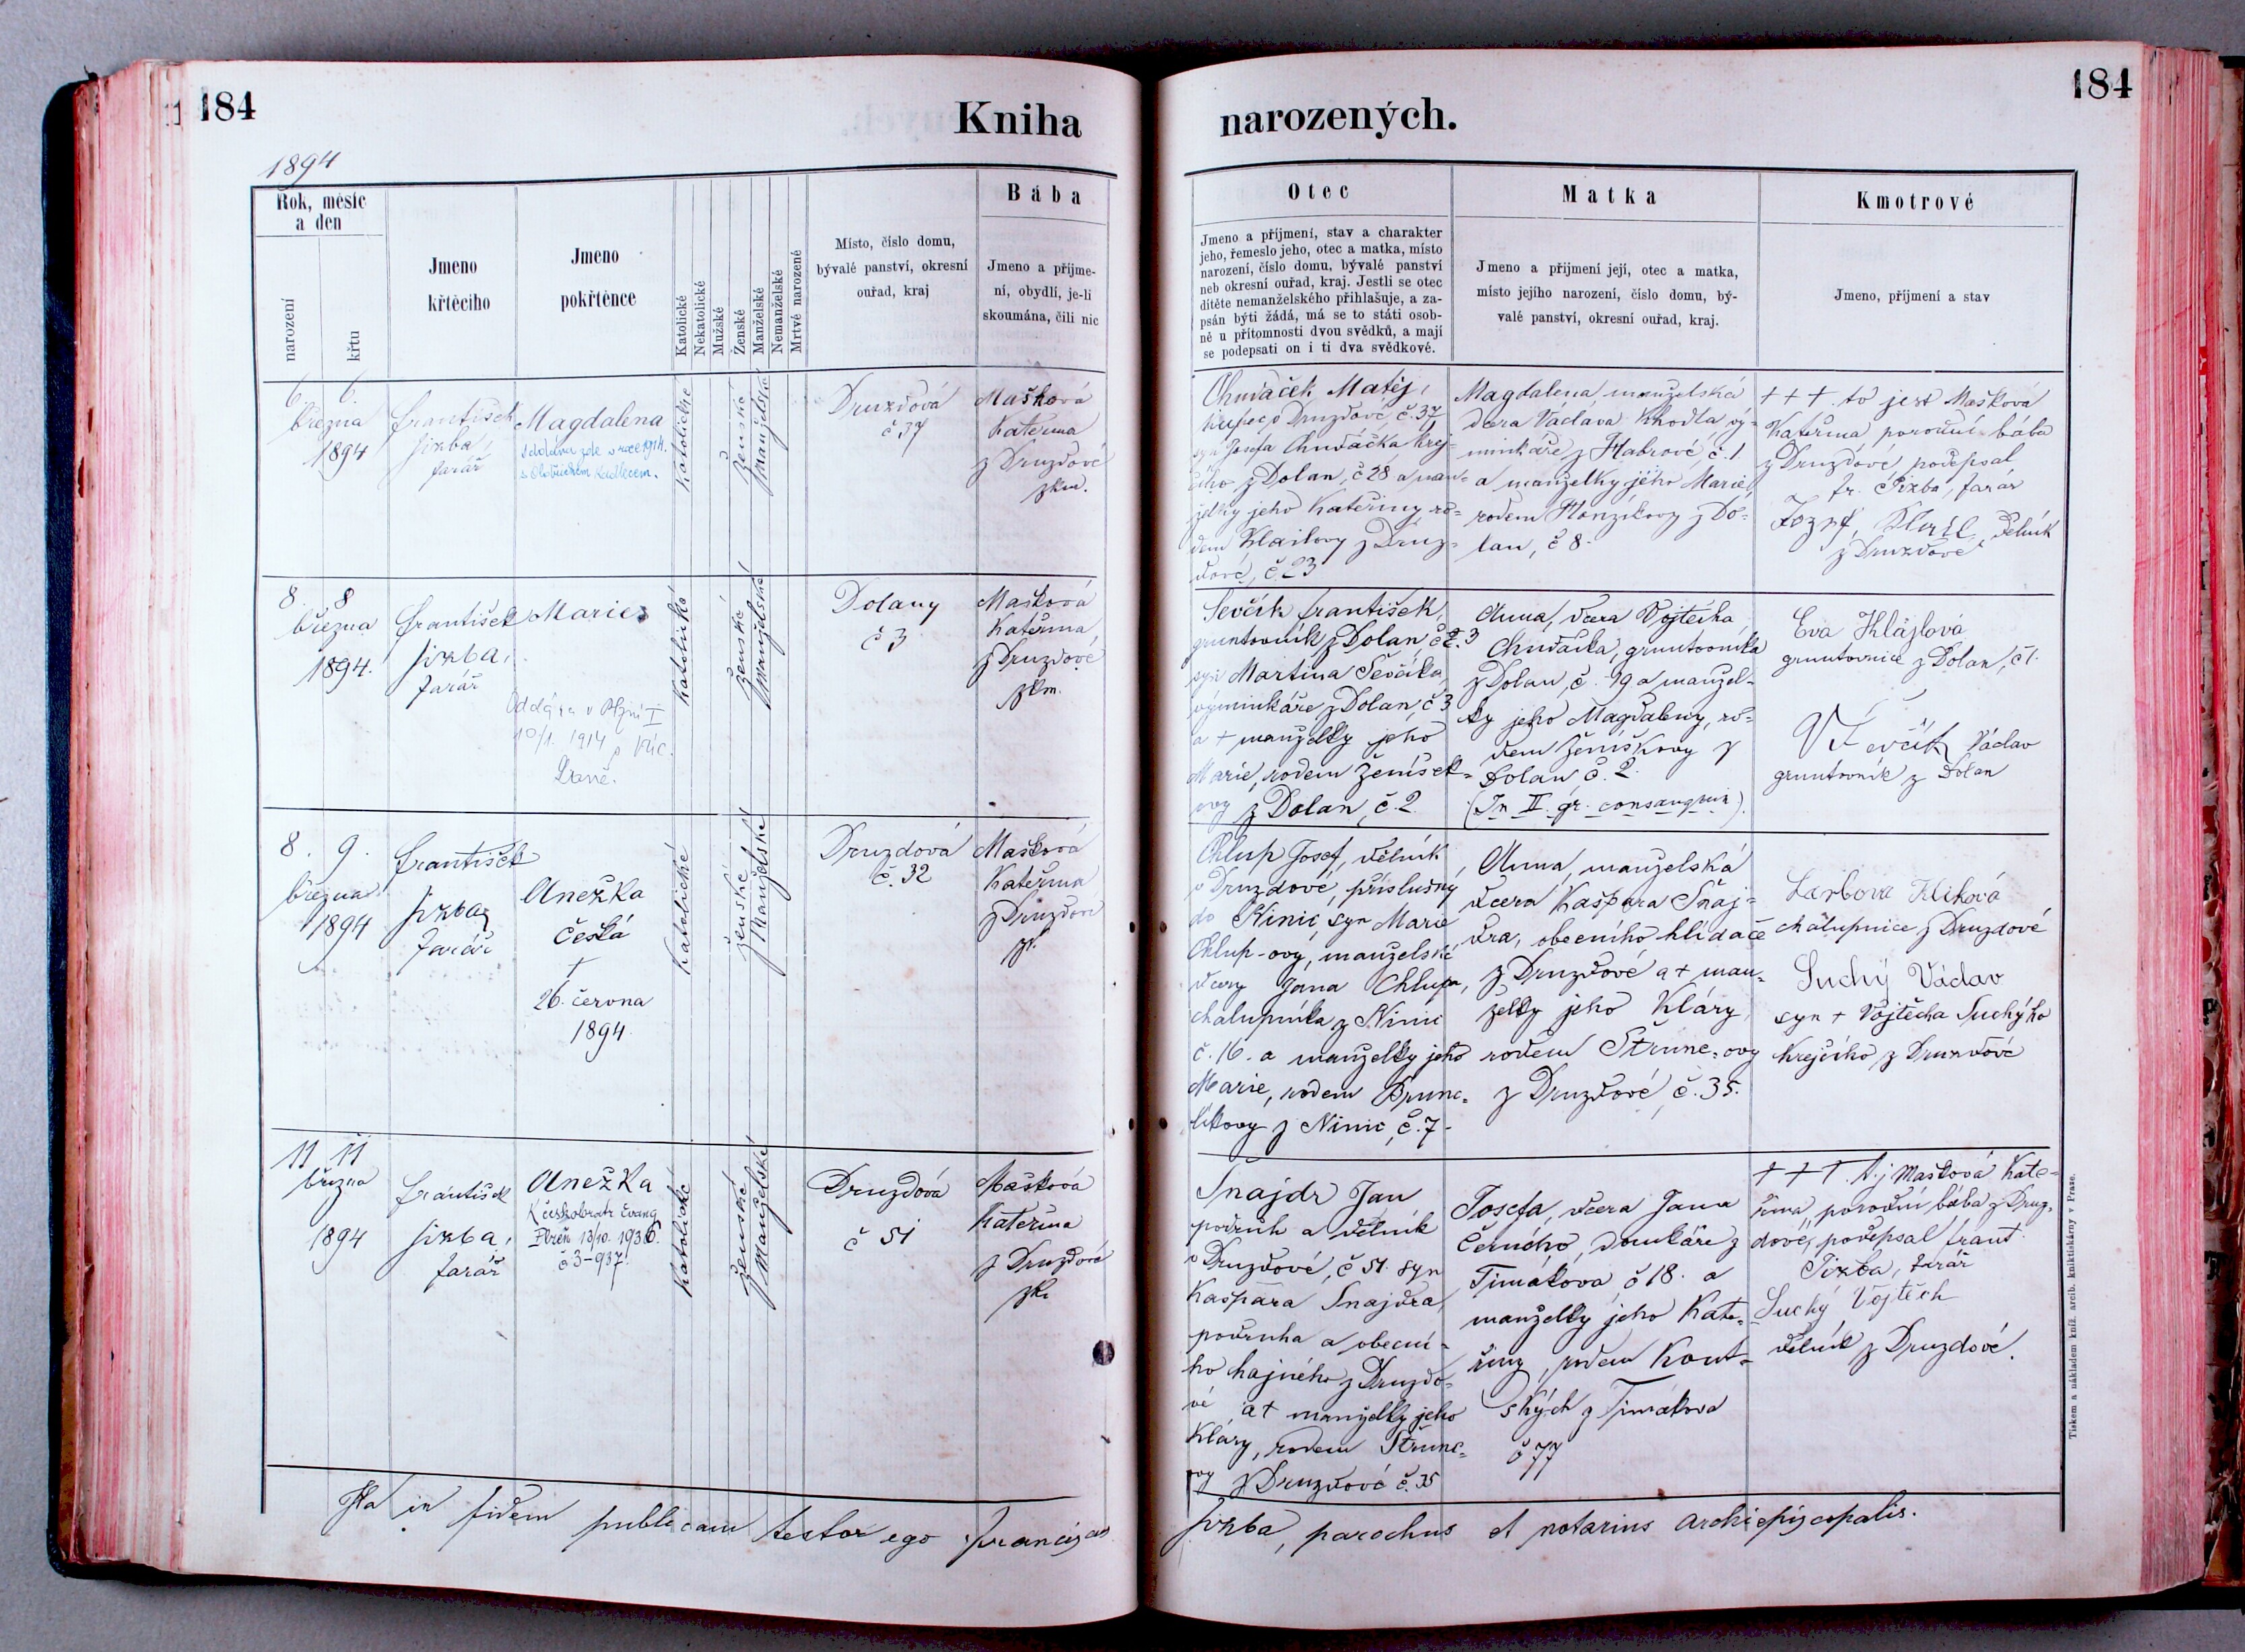 184
Kniha
narozených.
184
1894
Rok, měsíc
a den
narození
křtu
Jmeno
křtěcího
Jmeno
pokřtěnce
Katolické
Nekatolické
Mužské
Ženské
Manželské
Nemanželské
Mrtvě narozené
Místo, číslo domu,
bývalé panství, okresní
ouřad, kraj
Bába
Jmeno a přijme-
ní, obydlí, je-li
skoumána, čili nic
Otec
Jmeno a příjmení, stav a charakter
jeho, řemeslo jeho, otec a matka, místo
narození, číslo domu, bývalé panství
neb okresní ouřad, kraj. Jestli se otec
dítěte nemanželského přihlašuje, a za-
psán býti žádá, má se to státi osob-
ně u přítomnosti dvou svědků, a mají
se podepsati on i ti dva svědkové.
Matka
Jmeno a přijmení její, otec a matka,
místo jejího narození, číslo domu, bý-
valé panství, okresní ouřad, kraj.
Kmotrové
Jmeno, příjmení a stav
6. 6.
března
1894
František
Jizba,
farář
Magdalena
Oddána zde v roce 1914.
Katolické
ženské
Manželské
Druzdová
č 37
Mašková
Kateřina
z Druzdové
zkm.
Chudáček Matěj,
kupec v Druzdové č. 37
syn Josefa Chudáčka krej-
čího z Dolan, č 28 a man-
želky jeho Kateřiny ro-
dem Klailovy z Druz-
dové, č. 23
Magdalena manželská
dcera Václava Khodla vý-
minkáře z Habrové, č. 1
a manželky jeho Marie,
rodem Honzíkovy z Do-
lan, č 8.
+++ to jest Mašková
Kateřina, porodní bába
z Druzdové, podepsal
fr. Jizba, farář
dělník
z Druzdové
8. 8
března
1894.
František
Jizba,
farář
Marie
Oddána v Plzni I
10/1. 1914 s
Katolické
ženské
manželské
Dolany
č 3
Mašková
Kateřina,
z Druzdové
zkm.
Ševčík František,
gruntovník z Dolan, č. 3
syn Martina Ševčíka,
výminkáře z Dolan, č 3
a + manželky jeho
Marie, rodem Ženíšek-
ovy z Dolan, č. 2
Anna, dcera Vojtěcha
Chudáčka, gruntovníka
z Dolan, č. 19 a manžel-
ky jeho Magdaleny, ro-
dem Ženíškovy z
Dolan č. 2.
(In II. gr. consanguin.)
Eva Klajlová
gruntovnice z Dolan, č 1.
V Ševčík Václav
gruntovník z Dolan
8. 9.
března
1894
František
Jizba,
farář
Anežka
Česká
+
26. června
1894
katolické
ženské
Manželské
Druzdová
č. 32
Mašková
Kateřina
z Druzdové
zk.
Chlup Josef, dělník
v Druzdové, příslušný
do Ninic, syn Marie
Chlup-ovy, manželské
dcery Jana Chlupa,
chalupníka z Ninic
č. 16. a manželky jeho
Marie, rodem Brunc-
líkovy z Ninic, č. 7.
Anna, manželská
dcera Kašpara Šnaj-
dra, obecního hlídače
z Druzdové a + man-
želky jeho Kláry,
rodem Štrunc-ovy
z Druzdové, č. 35.
Barbora Kliková
chalupnice z Druzdové
Suchý Václav
syn + Vojtěcha Suchýho
krejčího z Druzdové
11 11
března
1894
František
Jizba,
farář
Anežka
K českobratr. Evang
Plzeň 13/10. 1936.
č 3-937.
Katolické
ženské
Manželské
Druzdová
č 51
Mašková
Kateřina
z Druzdové
zk.
Šnajdr Jan
podruh a dělník
v Druzdové, č 51. syn
Kašpara Šnajdra,
podruha a obecní-
ho hajného z Druzdo-
vé a + manželky jeho
Kláry, rodem Štrunc-
ovy z Druzdové č. 35
Josefa, dcera Jana
Černého, domkáře z
Timákova č 18. a
manželky jeho Kate-
řiny, rodem Kout-
ských z Timákova
č 77
+++ t. j. Mašková Kate-
řina, porodní bába z Druz-
dové, podepsal frant.
Jizba, farář
Suchý Vojtěch
dělník z Druzdové.
Ita in fidem publicam testor ego Franciscus
Jizba, parochus et notarius archiepiscopalis.
Tiskem a nákladem kníž. arcib. knihtiskárny v Praze.